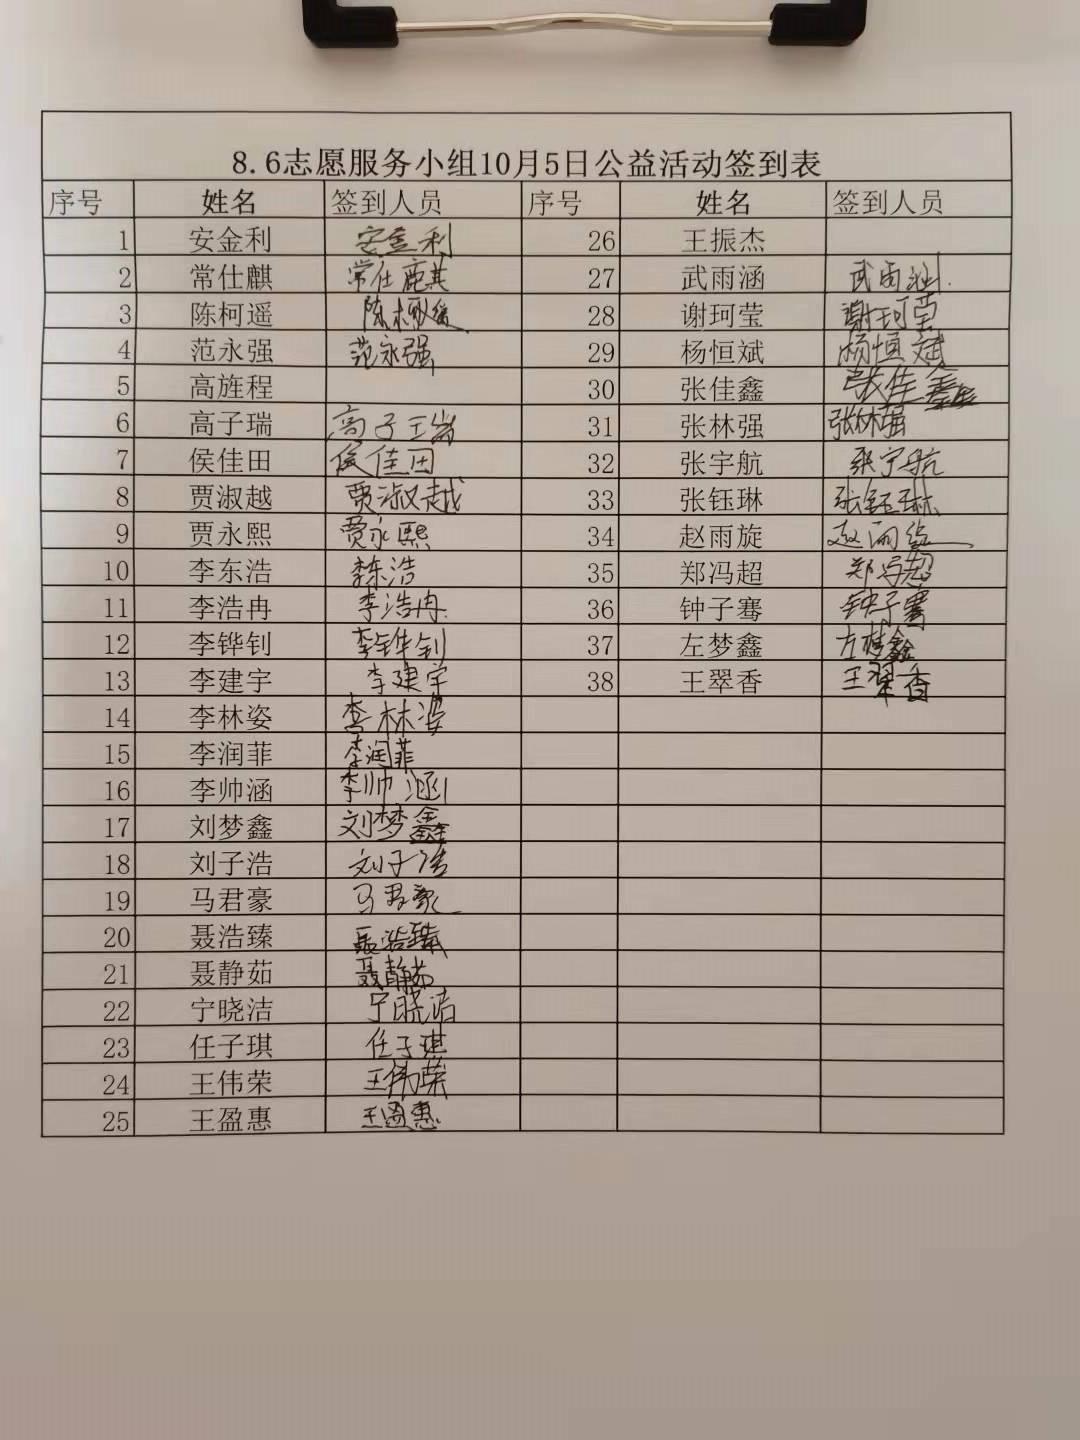 8.6志愿服务小组10月5日公益活动签到表
序号 姓名 签到人员 序号 姓名 签到人员
1 安金利 安金利 26 王振杰
2 常仕麒 常仕麒 27 武雨涵 武雨涵
3 陈柯遥 陈柯遥 28 谢珂莹 谢珂莹
4 范永强 范永强 29 杨恒斌 杨恒斌
5 高旌程 30 张佳鑫 张佳鑫
6 高子瑞 高子瑞 31 张林强 张林强
7 侯佳田 侯佳田 32 张宇航 张宇航
8 贾淑越 贾淑越 33 张钰琳 张钰琳
9 贾永熙 贾永熙 34 赵雨旋 赵雨旋
10 李东浩 李东浩 35 郑冯超 郑冯超
11 李浩冉 李浩冉 36 钟子骞 钟子骞
12 李铧钊 李铧钊 37 左梦鑫 左梦鑫
13 李建宇 李建宇 38 王翠香 王翠香
14 李林姿 李林姿
15 李润菲 李润菲
16 李帅涵 李帅涵
17 刘梦鑫 刘梦鑫
18 刘子浩 刘子浩
19 马君豪 马君豪
20 聂浩臻 聂浩臻
21 聂静茹 聂静茹
22 宁晓洁 宁晓洁
23 任子琪 任子琪
24 王伟荣 王伟荣
25 王盈惠 王盈惠